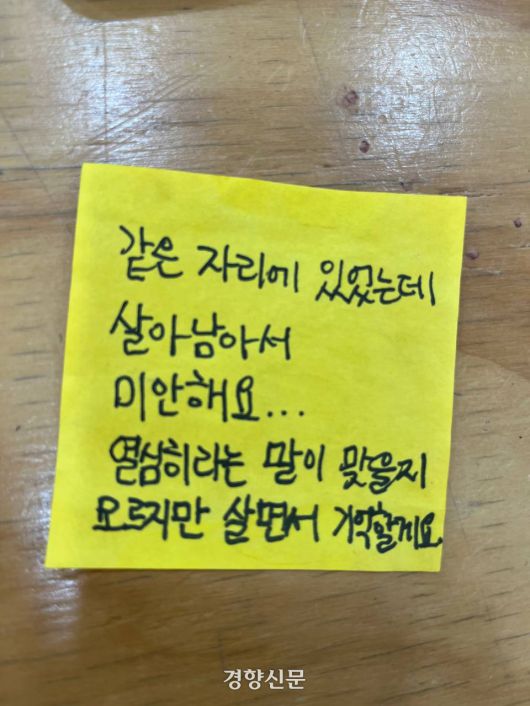 같은 자리에 있었는데
살아남아서
미안해요...
열심히라는 말이 맞을지
모르지만 살면서 기억할게요.
경향신문